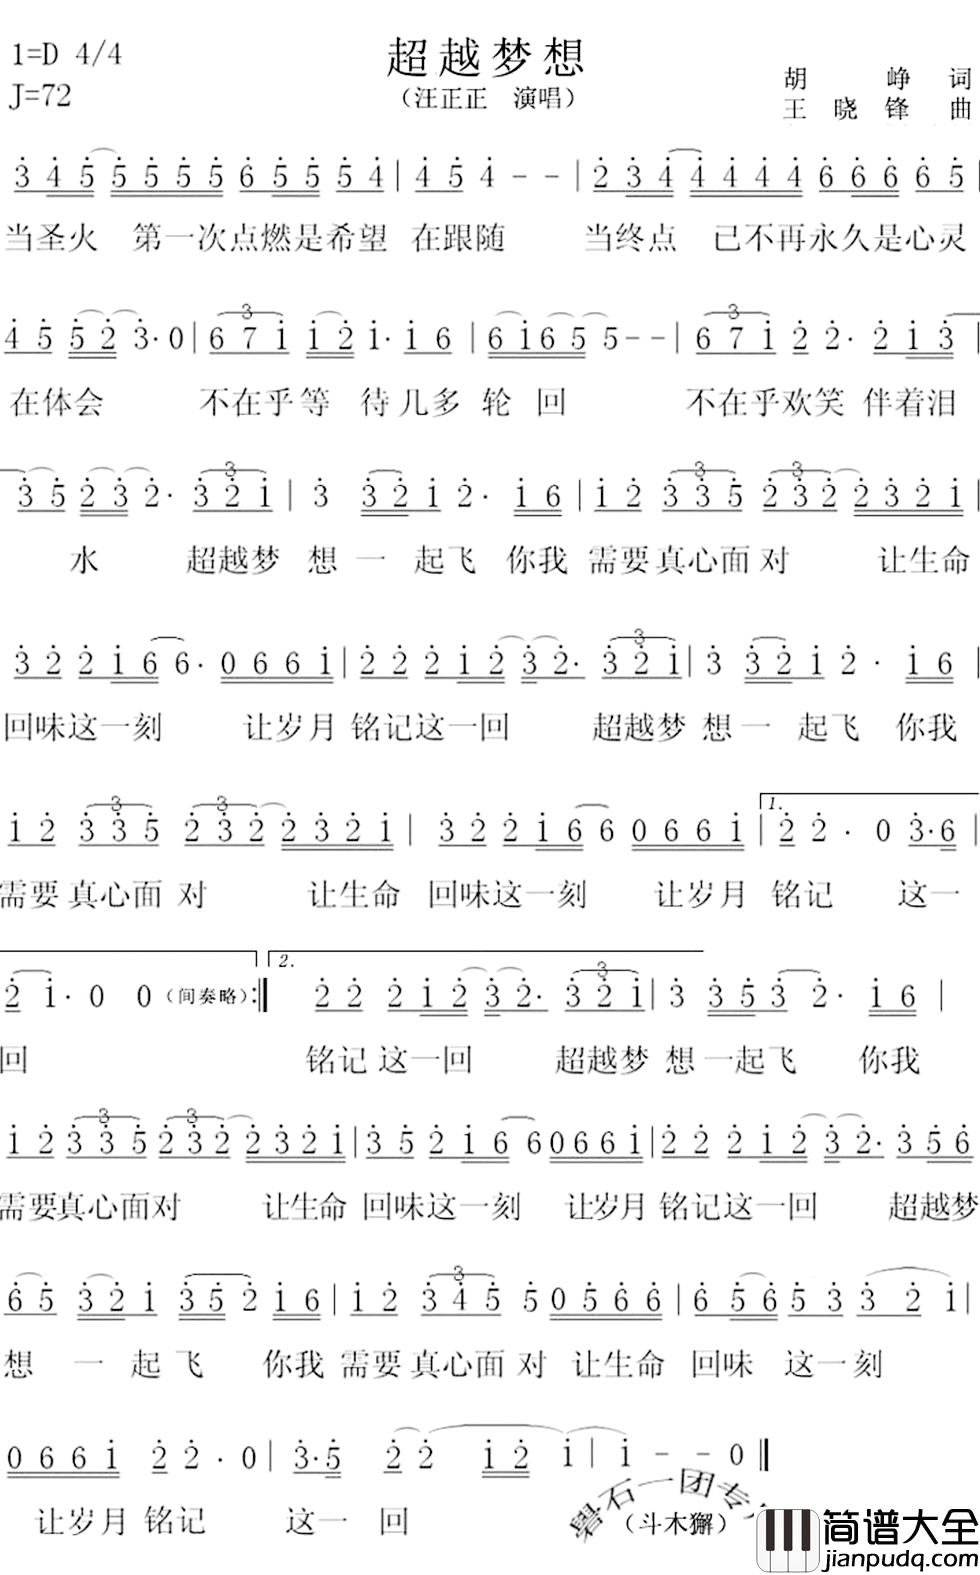 1=D 4/4
超越梦想
胡 峥 词
J=72
(汪正正 演唱)
王 晓 锋 曲
3 4 5 5 5 5 5 6 5 5 5 4 | 4 5 4 - - | 2 3 4 4 4 4 4 6 6 6 6 5 |
当圣火 第一次点燃是希望 在跟随 当终点 已不再永久是心灵
4 5 5 2 3· 0 | 6 7 1 1 2 1· 1 6 | 6 1 6 5 5 - - | 6 7 1 2 2· 2 1 3 |
在体会 不在乎等 待几多轮回 不在乎欢笑 伴着泪
3 5 2 3 2· 3 2 1 | 3 3 2 1 2· 1 6 | 1 2 3 3 5 2 3 2 2 3 2 1 |
水 超越梦 想一 起飞 你我 需要真心面对 让生命
3 2 2 1 6 6· 0 6 6 1 | 2 2 2 1 2 3 2· 3 2 1 | 3 3 2 1 2· 1 6 |
回味这一刻 让岁月 铭记这一回 超越梦 想一 起飞 你我
1 2 3 3 5 2 3 2 2 3 2 1 | 3 2 2 1 6 6 0 6 6 1 | 1. 2 2· 0 3· 6 |
需要真心面 对 让生命 回味这一刻 让岁月 铭记 这一
2 1· 0 0 (间奏略) :‖ 2. 2 2 2 1 2 3 2· 3 2 1 | 3 3 5 3 2· 1 6 |
回 铭记 这一回 超越梦 想一起飞 你我
1 2 3 3 5 2 3 2 2 3 2 1 | 3 5 2 1 6 6 0 6 6 1 | 2 2 2 1 2 3 2· 3 5 6
需要真心面对 让生命 回味这一刻 让岁月 铭记这一回 超越梦
6 5 3 2 1 3 5 2 1 6 | 1 2 3 4 5 5 0 5 6 6 | 6 5 6 5 3 3 2 1 |
想 一 起 飞 你我 需要真心面 对 让生命 回味 这一刻
0 6 6 1 2 2· 0 | 3· 5 2 2 1 2 1 | 1 - - 0 ‖
让岁月 铭记 这一 回
磐石一团专
(斗木獬)
简谱大全
jianpudq.com